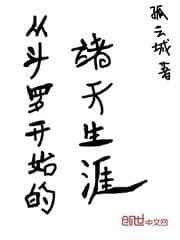 孤云城著
诸天生涯
从斗罗开始的
创世中文网